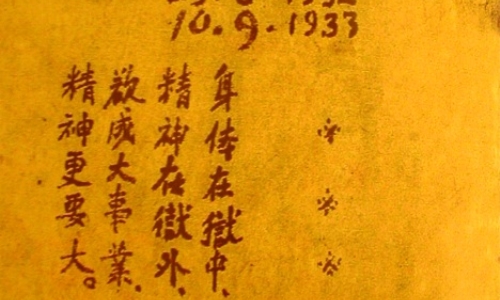 10.9.1933
身体在獄中、
精神在獄外、
欲成大事業、
精神更要大。